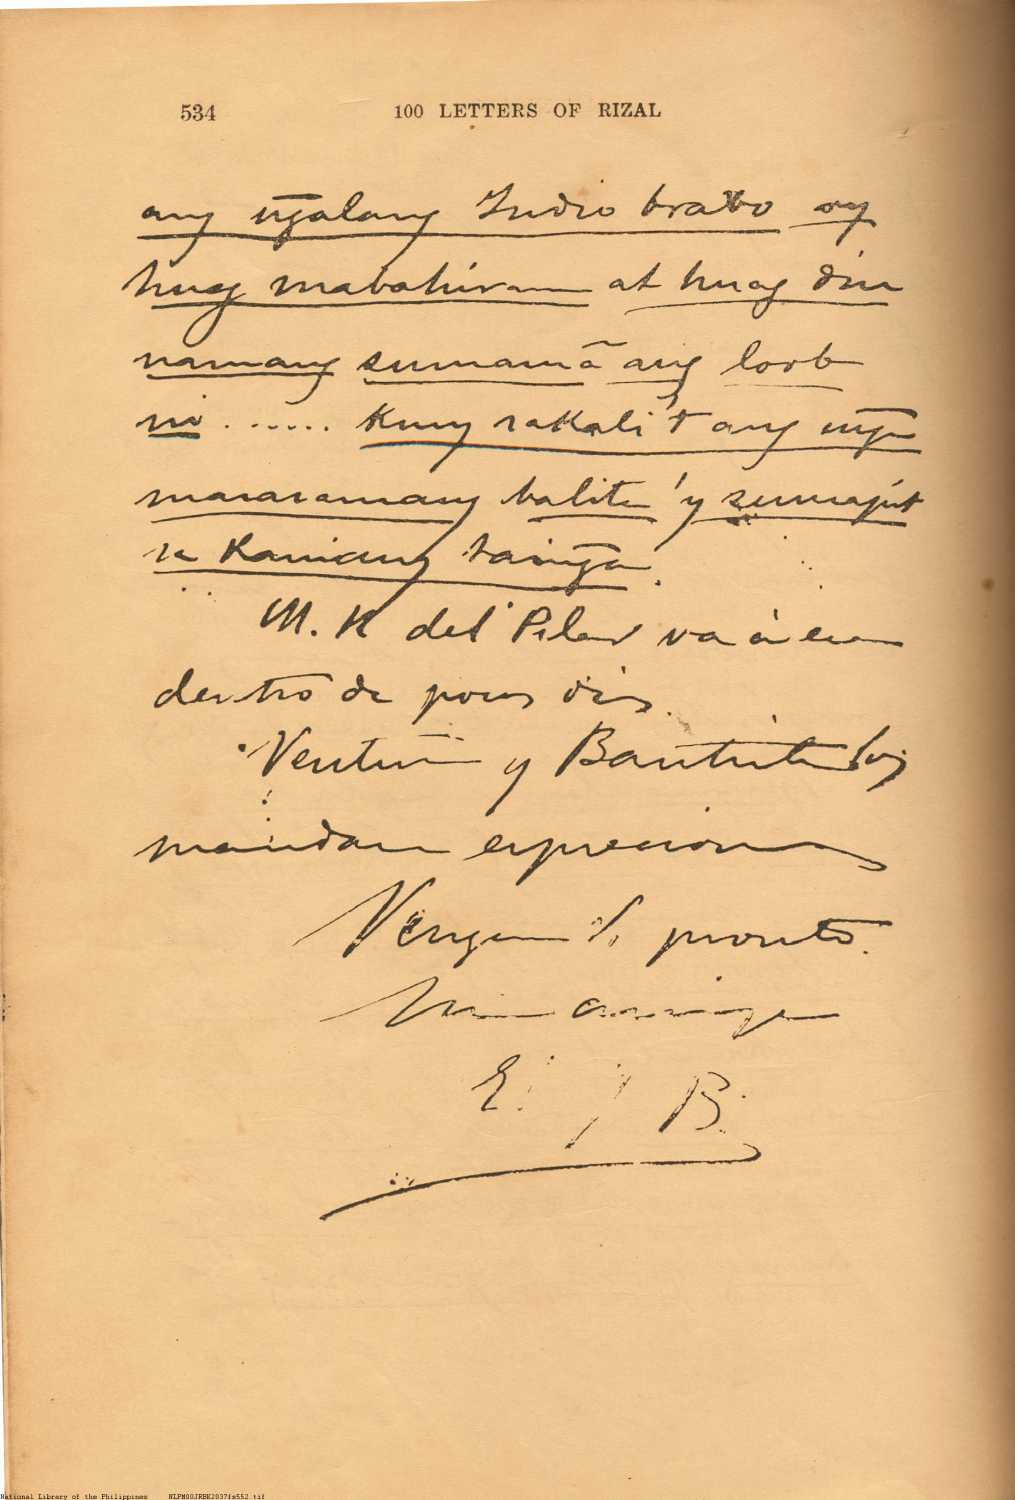 534 100 LETTERS OF RIZAL
ang ñgalang Indio bravo ay
huag mabahiran at huag din
namang sumamã ang loob
ni ...... Kung sakali't ang mga
masasamang balita 'y sumapit
sa Kaniang taiñga.
M. H. del Pilar va á esa
dentro de pocos dias.
Ventura y Bautista los
mandan expresiones
Venga V. pronto.
Su amigo
E. J B.
National Library of the Philippines NLPM00JRBK2037fs552.tif